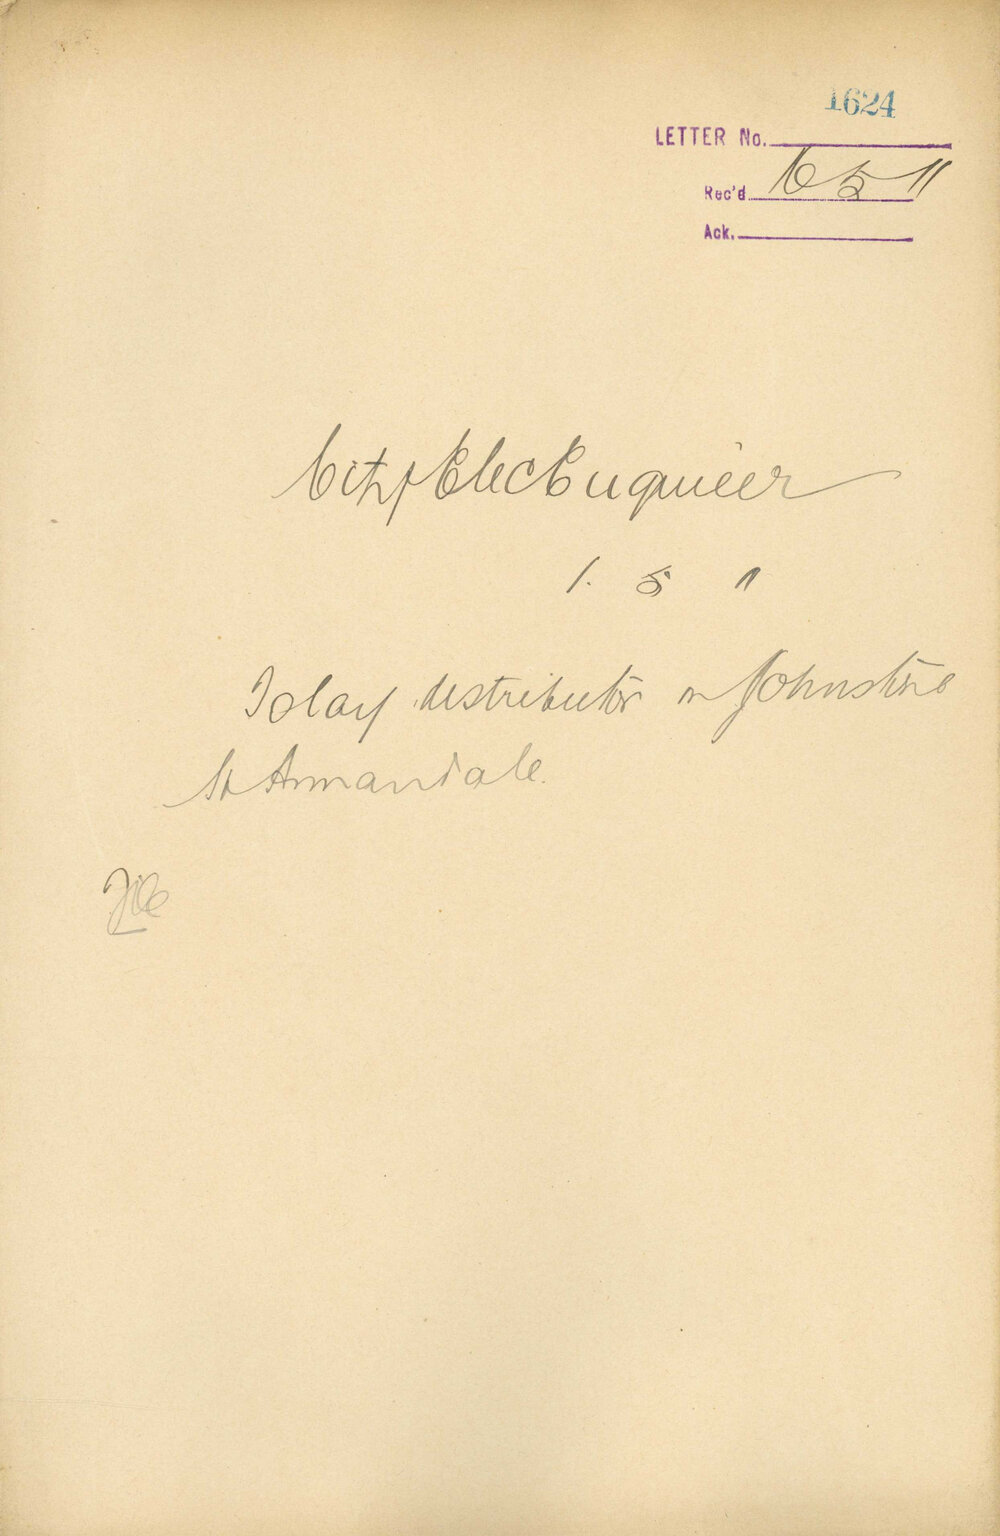 1624
LETTER No.
Rec'd 6 5 11
Ack.
City Elec Engineer
1. 5 11
To lay distributor in Johnstone
St Annandale.
File